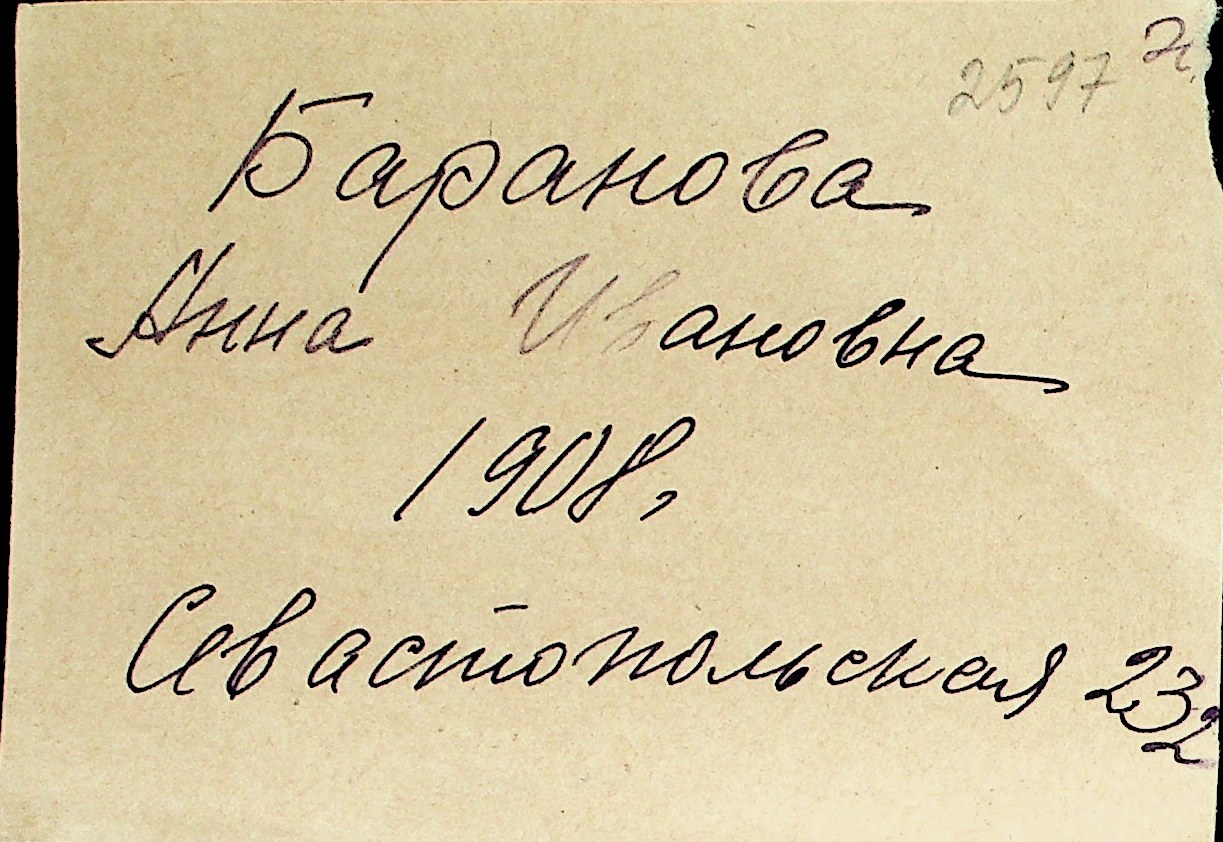 2597
Баранова
Анна Ивановна
1908,
Севастопольская 232